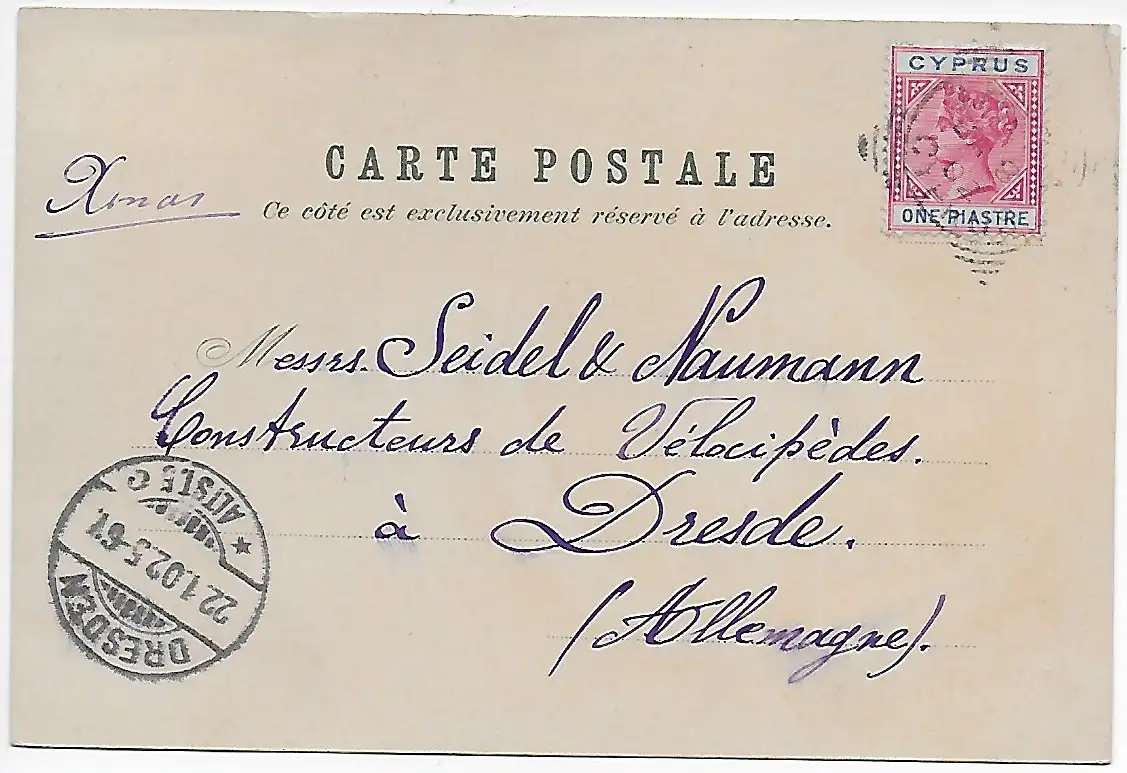 CYPRUS
ONE PIASTRE
CARTE POSTALE
Xmas
Ce côté est exclusivement réservé à l'adresse.
Messrs. Seidel & Naumann
Constructeurs de Vélocipèdes.
à Dresde.
(Allemagne).
DRESDEN
22.1.02.5-6V.
* ALTST.5 C